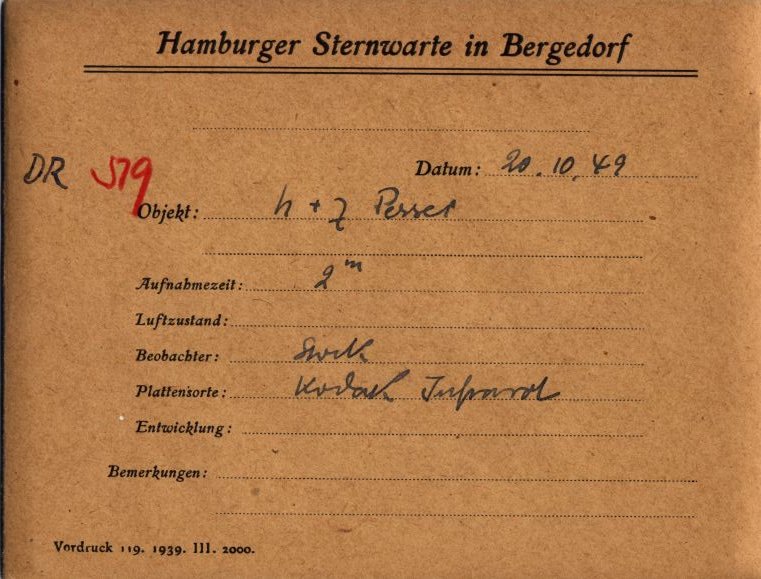 Hamburger Sternwarte in Bergedorf
DR 579 Datum: 20.10.49
Objekt: h + χ Persei
Aufnahmezeit: 2ᵐ
Luftzustand:
Beobachter: Stock
Plattensorte: Kodak Infrarot
Entwicklung:
Bemerkungen:
Vordruck 119. 1939. III. 2000.